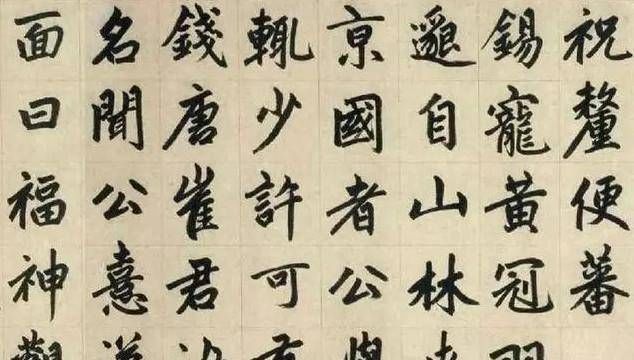 祝釐便蕃
錫寵黃冠
邈自山林
亰國者公
輒少許可
錢唐崔君
名聞公憙
面曰福神